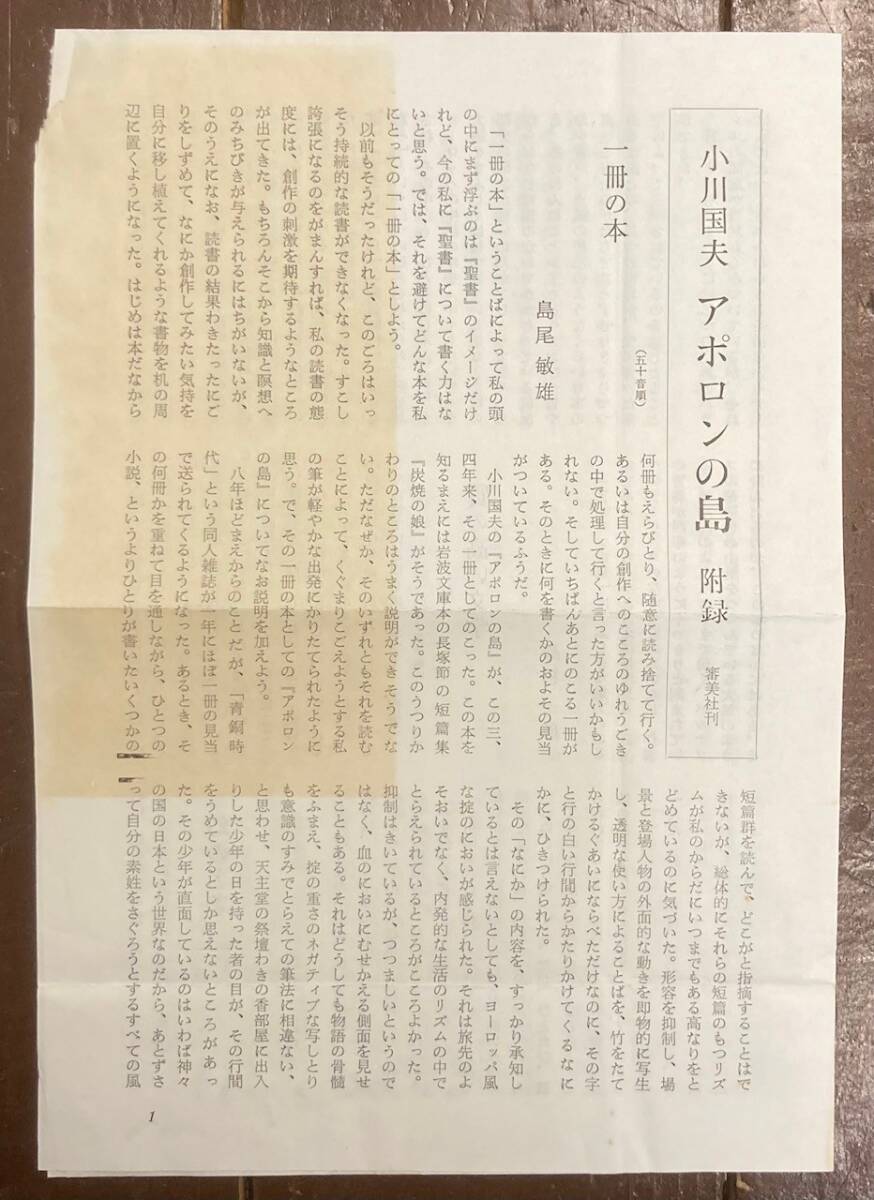 小川国夫 アポロンの島 附録 審美社刊
(五十音順)
一冊の本
島尾敏雄
「一冊の本」ということばによって私の頭
の中にまず浮ぶのは『聖書』のイメージだけ
れど、今の私に『聖書』について書く力はな
いと思う。では、それを避けてどんな本を私
にとっての「一冊の本」としよう。
以前もそうだったけれど、このごろはいっ
そう持続的な読書ができなくなった。すこし
誇張になるのをがまんすれば、私の読書の態
度には、創作の刺激を期待するようなところ
が出てきた。もちろんそこから知識と瞑想へ
のみちびきが与えられるにはちがいないが、
そのうえになお、読書の結果わきたったにご
りをしずめて、なにか創作してみたい気持を
自分に移し植えてくれるような書物を机の周
辺に置くようになった。はじめは本だなから
何冊もえらびとり、随意に読み捨てて行く。
あるいは自分の創作へのこころのゆれうごき
の中で処理して行くと言った方がいいかもし
れない。そしていちばんあとにのこる一冊が
ある。そのときに何を書くかのおよその見当
がついているふうだ。
小川国夫の『アポロンの島』が、この三、
四年来、その一冊としてのこった。この本を
知るまえには岩波文庫本の長塚節の短篇集
『炭焼の娘』がそうであった。このうつりか
わりのところはうまく説明ができそうでな
い。ただなぜか、そのいずれともそれを読む
ことによって、くぐまりこごえようとする私
の筆が軽やかな出発にかりたてられたように
思う。で、その一冊の本としての『アポロン
の島』についてなお説明を加えよう。
八年ほどまえからのことだが、「青銅時
代」という同人雑誌が一年にほぼ一冊の見当
で送られてくるようになった。あるとき、そ
の何冊かを重ねて目を通しながら、ひとつの
小説、というよりひとりが書いたいくつかの
短篇群を読んで、どこがと指摘することはで
きないが、総体的にそれらの短篇のもつリズ
ムが私のからだにいつまでもある高なりをと
どめているのに気づいた。形容を抑制し、場
景と登場人物の外面的な動きを即物的に写生
し、透明な使い方によることばを、竹をたて
かけるぐあいにならべただけなのに、その字
と行の白い行間からかたりかけてくるなに
かに、ひきつけられた。
その「なにか」の内容を、すっかり承知し
ているとは言えないとしても、ヨーロッパ風
な掟のにおいが感じられた。それは旅先のよ
そおいでなく、内発的な生活のリズムの中で
とらえられているところがこころよかった。
抑制はきいているが、つつましいというので
はなく、血のにおいにむせかえる側面を見せ
ることもある。それはどうしても物語の骨髄
をふまえ、掟の重さのネガティブな写しとり
も意識のすみでとらえての筆法に相違ない、
と思わせ、天主堂の祭壇わきの香部屋に出入
りした少年の日を持った者の目が、その行間
をうめているとしか思えないところがあっ
た。その少年が直面しているのはいわば神々
の国の日本という世界なのだから、あとずさ
って自分の素姓をさぐろうとするすべての風
1